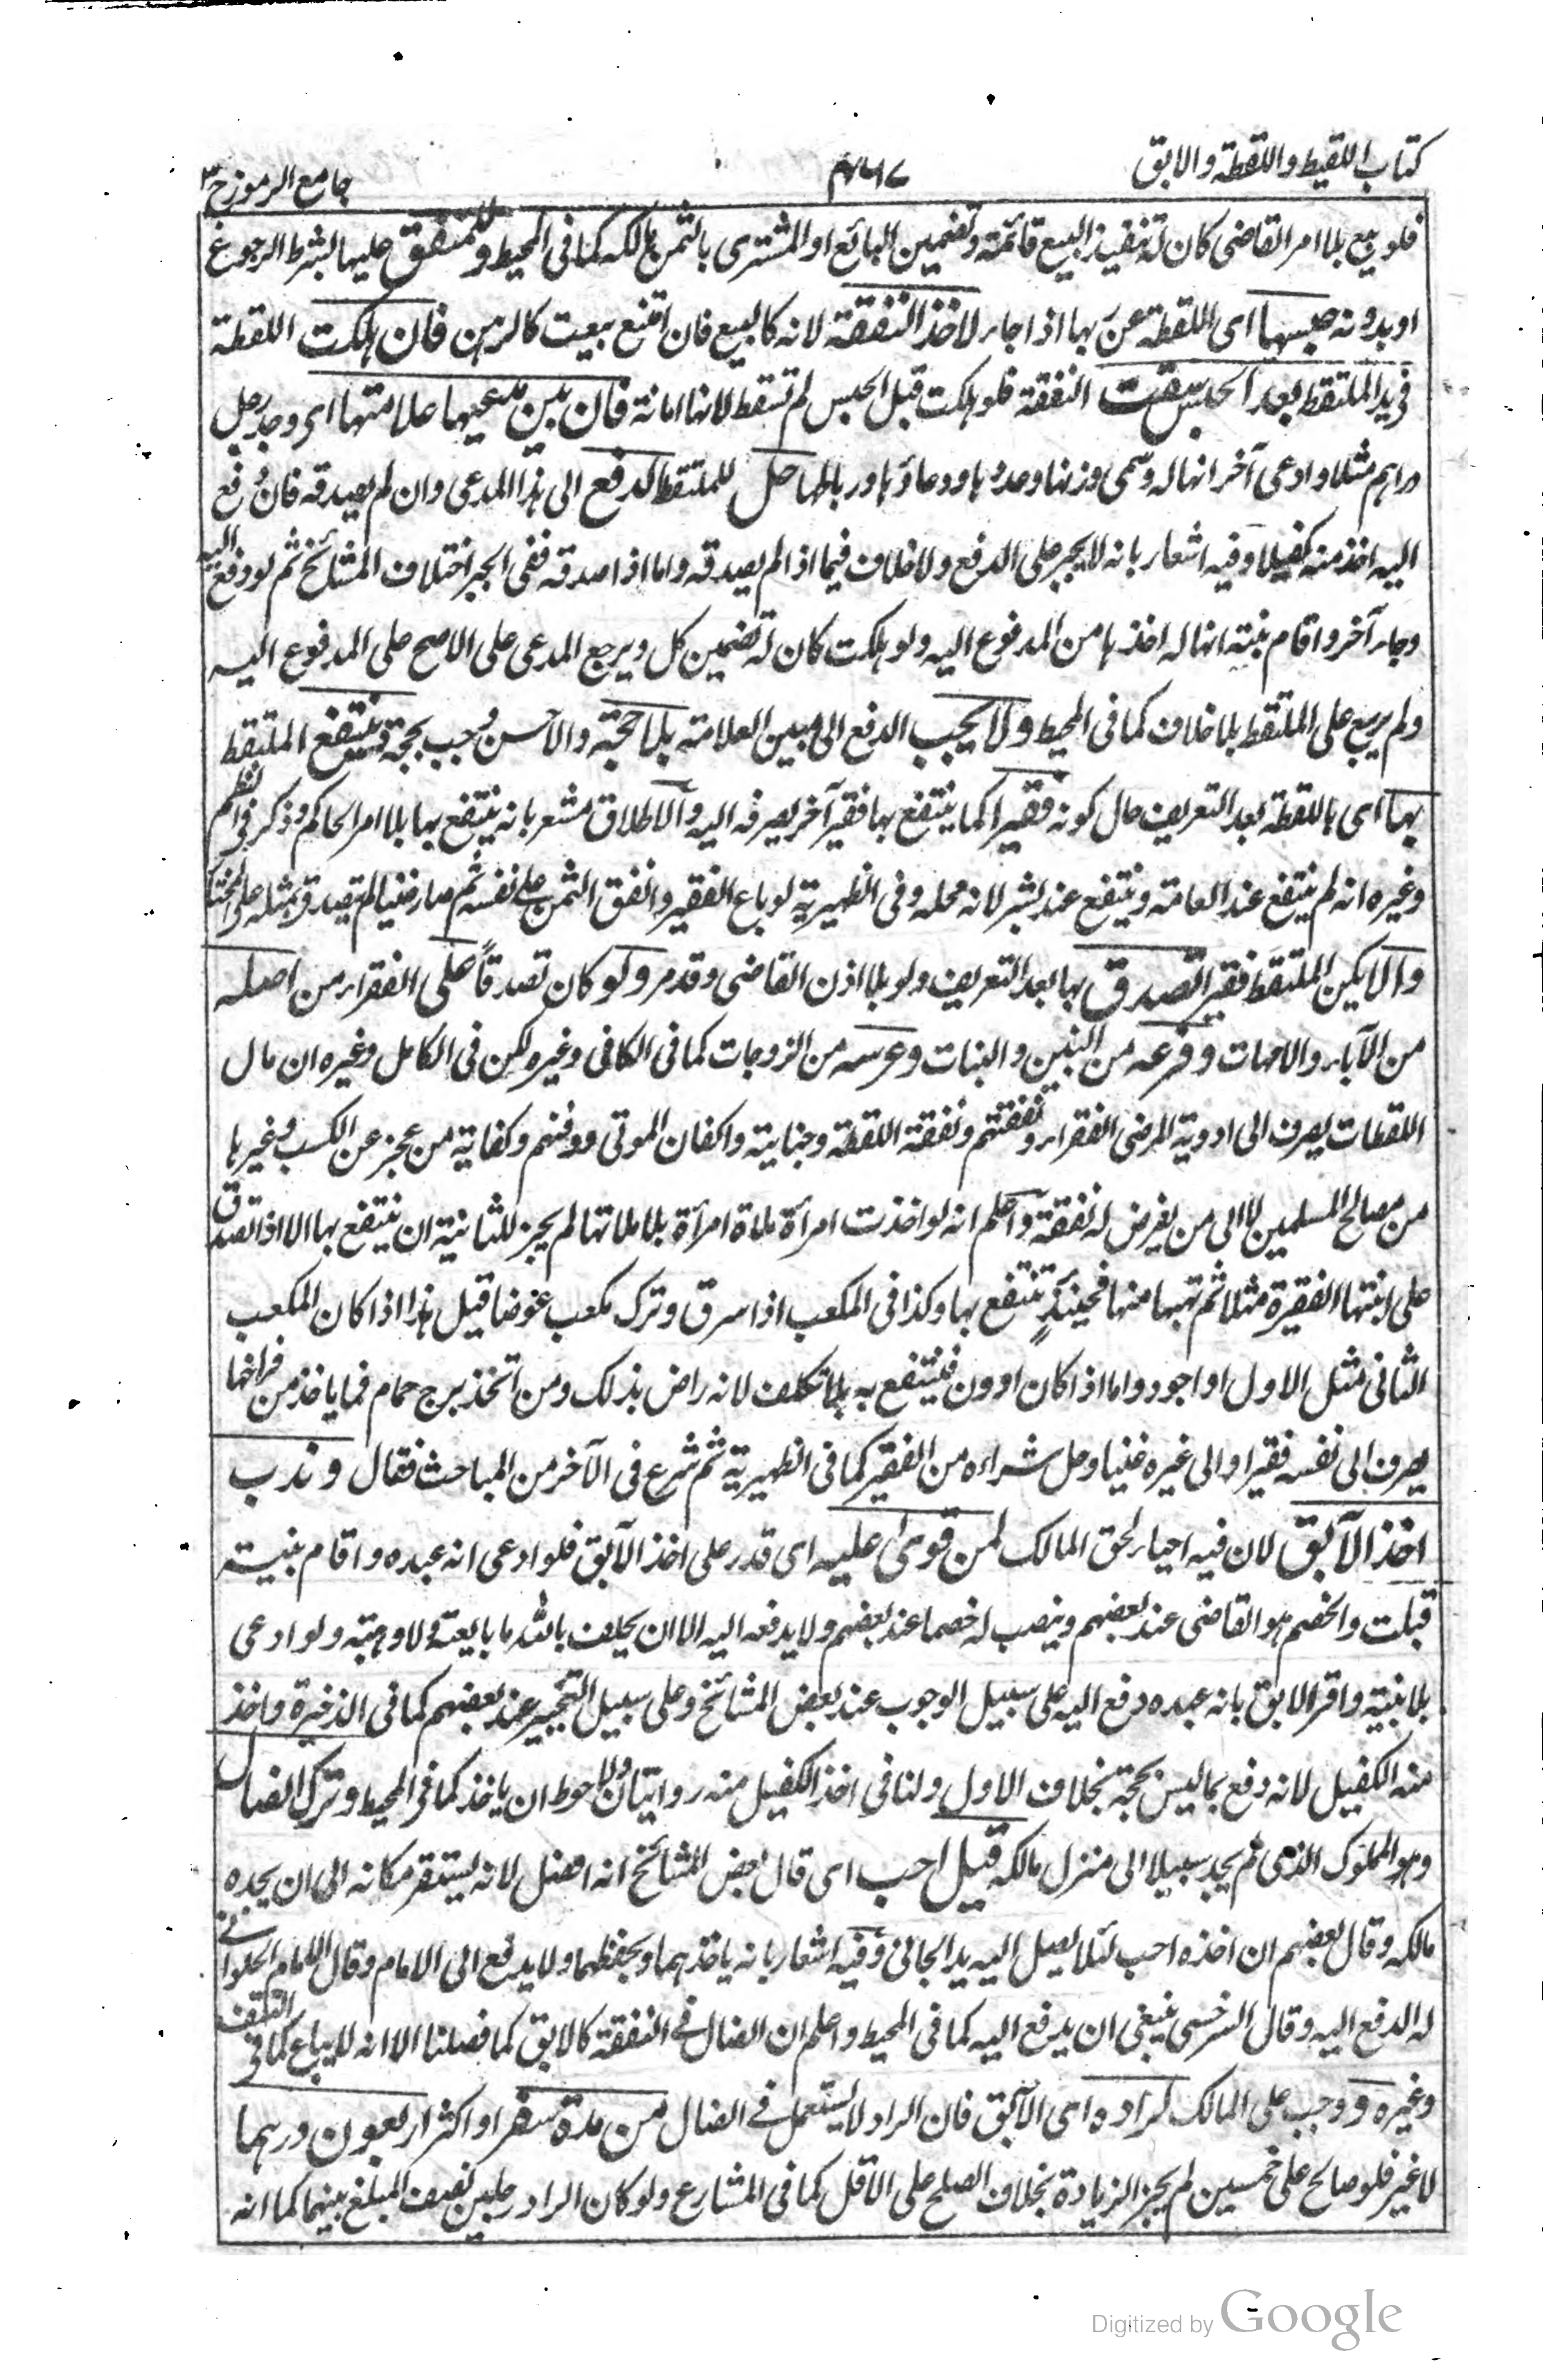 كتاب اللقيط واللقطة والابق
٤٦٧
جامع الرموز ج ٣
فلو بيع بلا امر القاضى كان له تنفيذ البيع قائمة وتضمين البائع او المشترى بالثمن مالكه كما فى المحيط وللمنفق عليها بشرط الرجوع
او بدونه حبسها اى اللقطة عن ربها اذا جاء لاخذ النفقة لانه كالبيع فان امتنع بيعت كالرهن فان هلكت اللقطة
فى يد الملتقط بعد الحبس سقطت النفقة فلو هلكت قبل الحبس لم تسقط لانها امانة فان بين مدعيها علامتها اى وجد رجل
دراهم مثلا وادعى آخر انها له وسمى وزنها وعددها ووعاؤها ورباطها حل للملتقط الدفع الى هذا المدعى وان لم يصدقه فان دفع
اليه اخذ منه كفيلا وفيه اشعار بانه لا يجبر على الدفع ولا خلاف فيما اذا لم يصدقه واما اذا صدقه ففى الجبر اختلاف المشائخ ثم لو دفع اليه
وجاء آخر واقام بينة انها له اخذها من المدفوع اليه ولو هلكت كان له تضمين كل ويرجع المدعى على الاصح على المدفوع اليه
ولم يرجع على الملتقط بلا خلاف كما فى المحيط ولا يجب الدفع الى مبين العلامة بلا حجة والاحسن وجب بحجة وينتفع الملتقط
بها اى باللقطة بعد التعريف حال كونه فقيرا كما ينتفع بها فقير آخر يصرفه اليه والاطلاق مشعر بانه ينتفع بها بلا امر الحاكم وذكر فى النظم
وغيره انه لم ينتفع عند العامة وينتفع عند بشر لانه محله وفى الظهيرية لو باع الفقير وانفق الثمن على نفسه ثم صار غنيا لم يتصدق بمثله على المختار
والا يكن الملتقط فقيرا تصدق بها بعد التعريف ولو بلا اذن القاضى وقد مر ولو كان تصدقاً على الفقراء من اصله
من الآباء والامهات وفرعه من البنين والبنات وعرسه من الزوجات كما فى الكافى وغيره لكن فى الكامل وغيره ان مال
اللقطات يصرف الى ادوية المرضى الفقراء ونفقتهم ونفقة اللقطة وجناية واكفان الموتى ودفنهم وكفاية من عجز عن الكسب وغيرها
من مصالح المسلمين لا الى من يفرض له نفقة واعلم انه لو اخذت امرأة ملاءة امرأة بلا ملاتها لم يجز للثانية ان ينتفع بها الا اذا تصدق
على ابنتها الفقيرة مثلا ثم تهبها منها فحينئذٍ تنتفع بها وكذا فى المكعب اذا سرق وترك مكعب عوضا قيل هذا اذا كان المكعب
الثانى مثل الاول او اجود واما اذا كان ادون فينتفع به بلا تكلف لانه راض بذلك ومن اتخذ برج حمام فما ياخذ من فراخها
يصرف الى نفسه فقيرا والى غيره غنيا وحل شراءه من الفقير كما فى الظهيرية ثم شرع فى الآخر من المباحث فقال وندب
اخذ الآبق لان فيه احياء لحق المالك لمن قوى عليه اى قدر على اخذ الآبق فلو ادعى انه عبده واقام بينة
قبلت والخصم هو القاضى عند بعضهم وينصب له خصما عند بعضهم ولا يدفعه اليه الا ان يحلف بالله ما بايعته ولا وهبته ولو ادعى
بلا بينة واقر الابق بانه عبده دفع اليه على سبيل الوجوب عند بعض المشائخ وعلى سبيل التخيير عند بعضهم كما فى الذخيرة واخذ
منه الكفيل لانه دفع بما ليس بحجة بخلاف الاول ولنا فى اخذ الكفيل منه روايتان والاحوط ان ياخذ كما فى المحيط وترك الضال
وهو المملوك الذى لم يجد سبيلا الى منزل مالكه قيل احب اى قال بعض المشائخ انه افضل لانه يستقر مكانه الى ان يجده
مالكه وقال بعضهم ان اخذه احب لئلا يصل اليه يد الجانى وفيه اشعار بانه ياخذهما ويحفظهما ولا يدفع الى الامام وقال الامام الحلوانى
له الدفع اليه وقال السرخسى ينبغى ان يدفع اليه كما فى المحيط واعلم ان الضال فى النفقة كالابق كما فصلنا الا انه لا يباع كما فى النتف
وغيره ووجب على المالك لراده اى الآبق فان الراد لا يستعمل فى الضال من مدة سفر او اكثر اربعون درهما
لا غير فلو صالح على خمسين لم يجز الزيادة بخلاف الصلح على الاقل كما فى المشارع ولو كان الراد رجلين نصف المبلغ بينهما كما انه
Digitized by Google